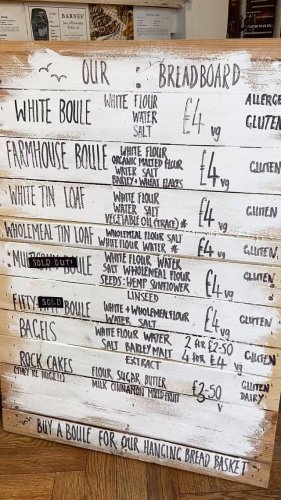 BARNEY
OUR : BREADBOARD
ALLERGE
WHITE BOULE WHITE FLOUR £4 vg GLUTEN
WATER
SALT
FARMHOUSE BOULE WHITE FLOUR £4 vg GLUTEN
ORGANIC MALTED FLOUR
WATER SALT
BARLEY + WHEAT FLAKES
WHITE TIN LOAF WHITE FLOUR £4 vg GLUTEN
WATER
SALT
VEGETABLE OIL (TRACE) *
WHOLEMEAL TIN LOAF WHOLEMEAL FLOUR SALT £4 vg GLUTEN
WHITE FLOUR WATER *
SOLD OUT! BOULE WHITE FLOUR WATER £4 vg GLUTEN
SALT WHOLEMEAL FLOUR
SEEDS: HEMP SUNFLOWER
LINSEED
FIFTY SOLD BOULE WHITE + WHOLEMEAL FLOUR £4 vg GLUTEN
WATER SALT
BAGELS WHITE FLOUR WATER 2 FOR £2.50 GLUTEN
SALT BARLEY MALT 4 FOR £4 vg
EXTRACT
ROCK CAKES FLOUR SUGAR BUTTER £2.50 V GLUTEN
(THEY'RE HUGE!!) MILK CINNAMON MIXED FRUIT DAIRY
BUY A BOULE FOR OUR HANGING BREAD BASKET